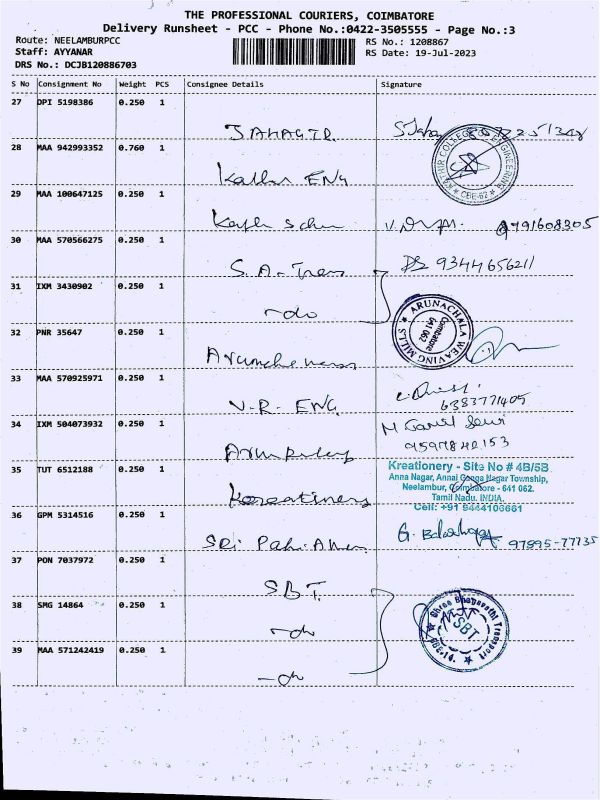 THE PROFESSIONAL COURIERS, COIMBATORE
Delivery Runsheet - PCC - Phone No.:0422-3505555 - Page No.:3
Route: NEELAMBURPCC
Staff: AYYANAR
DRS No.: DCJB120886703
RS No.: 1208867
RS Date: 19-Jul-2023
S No Consignment No Weight PCS Consignee Details Signature
27 DPI 5198386 0.250 1
JAHAGIR
28 MAA 942993352 0.760 1
ENG
KATHIR COLLEGE OF ENGINEERING
CBE-62
29 MAA 100647125 0.250 1
9791608305
30 MAA 570566275 0.250 1
S.A-Tren
9344656211
31 IXM 3430902 0.250 1
-do
ARUNACHALA WEAVING MILLS
Coimbatore
641 062
32 PNR 35647 0.250 1
33 MAA 570925971 0.250 1
V.R. ENG
6383771405
34 IXM 504073932 0.250 1
9597842153
35 TUT 6512188 0.250 1
Kreationery - Site No # 4B/5B
Anna Nagar, Annai Ganga Nagar Township,
Neelambur, Coimbatore - 641 062.
Tamil Nadu. INDIA.
Cell: +91 9444106661
36 GPM 5314516 0.250 1
SRi
97895-77735
37 PON 7037972 0.250 1
SBT
38 SMG 14864 0.250 1
-do
Shree Bhagavathi Transport
SBT
CBE-14.
39 MAA 571242419 0.250 1
-do